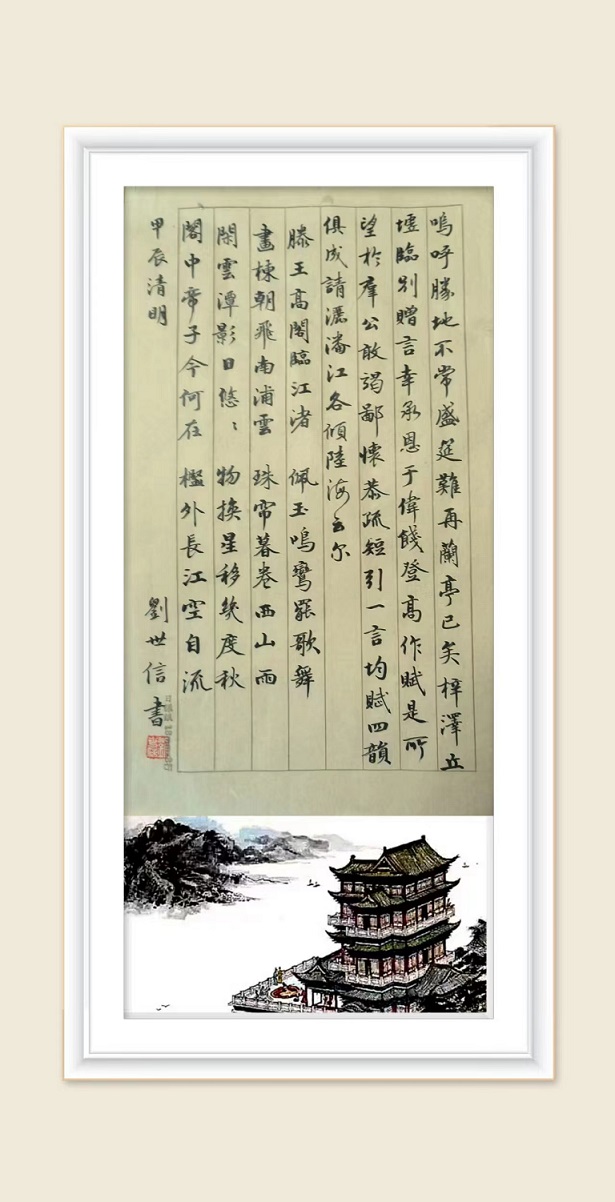 嗚呼勝地不常盛筵難再蘭亭已矣梓澤丘
墟臨別贈言幸承恩于偉餞登高作賦是所
望於羣公敢竭鄙懷恭疏短引一言均賦四韻
俱成請灑潘江各傾陸海云尔
滕王高閣臨江渚 佩玉鳴鸞罷歌舞
畫棟朝飛南浦雲 珠帘暮卷西山雨
閑雲潭影日悠〻 物換星移幾度秋
閣中帝子今何在 檻外長江空自流
甲辰清明 劉世信書